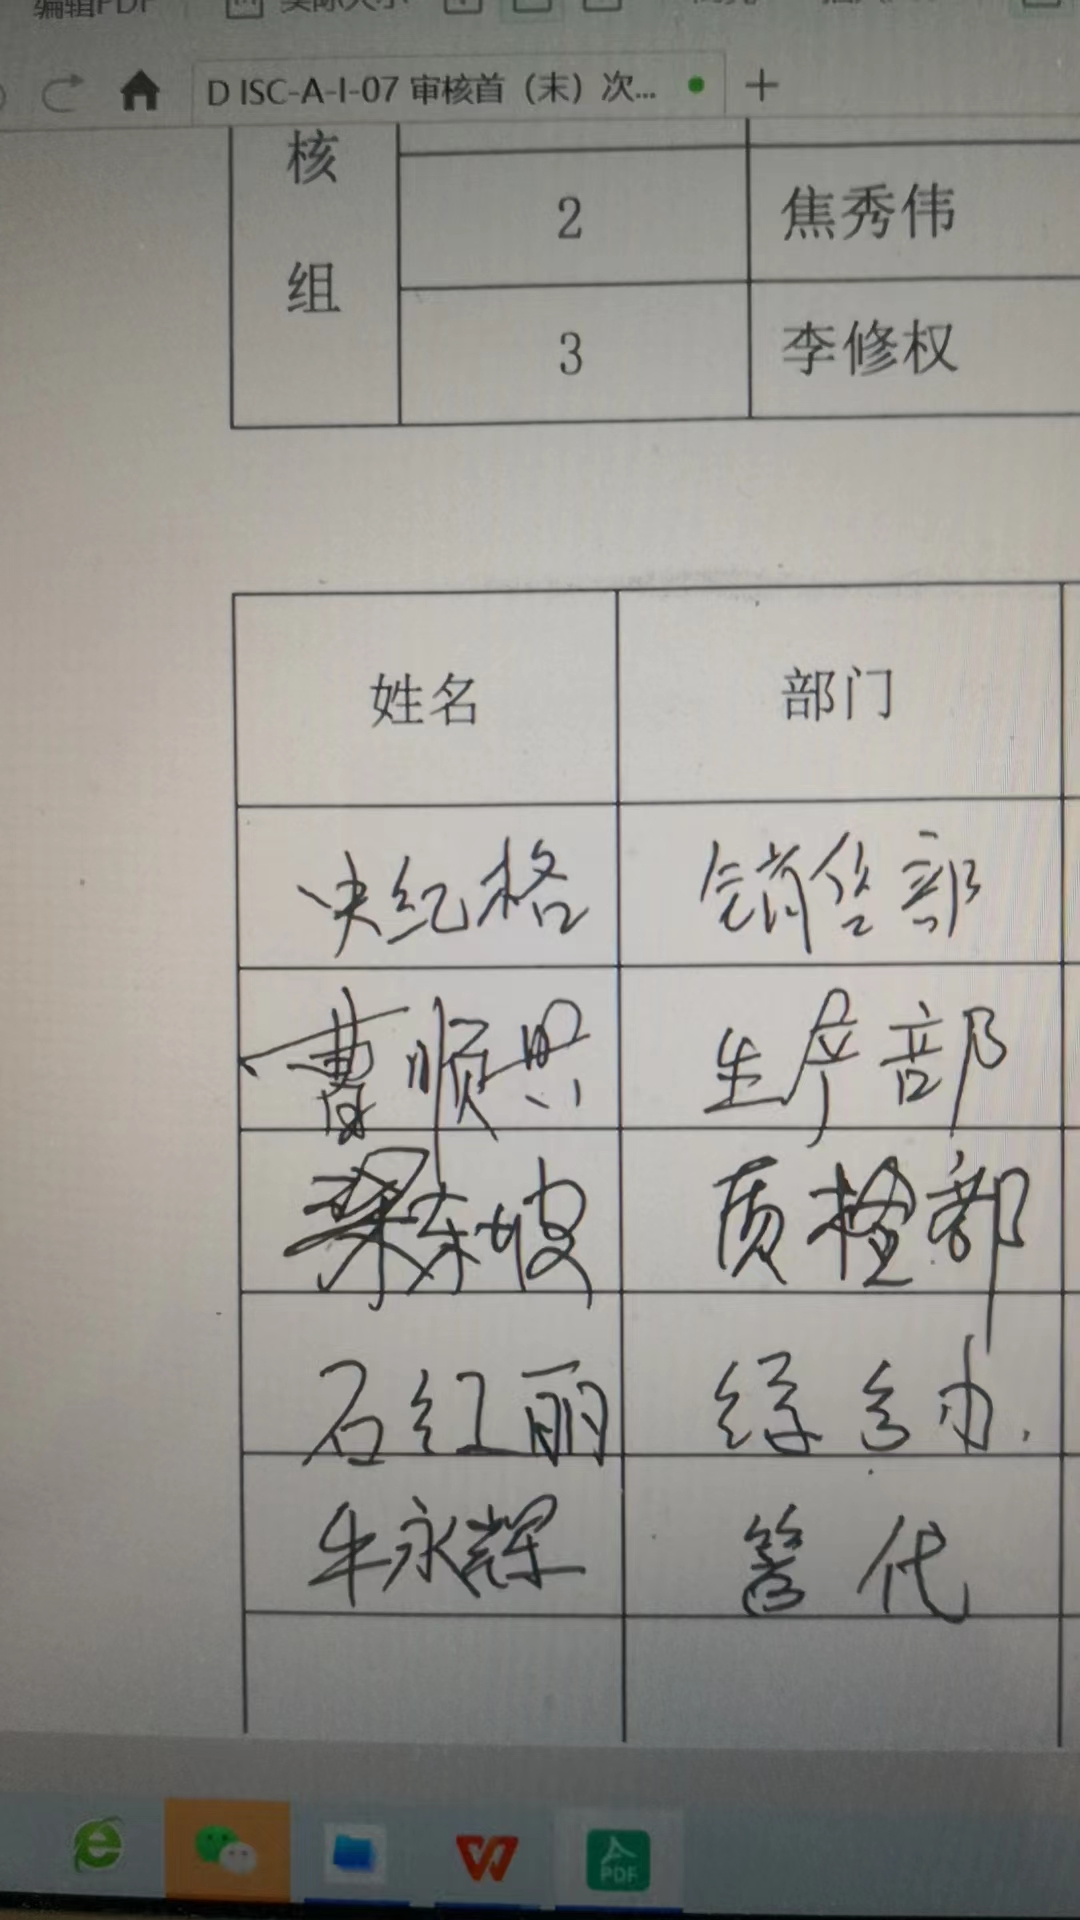 编辑PDF 实际大小
D ISC-A-I-07 审核首（末）次...
核
组
2 焦秀伟
3 李修权
姓名 部门
纪格 销售部
曹顺照 生产部
梁东坡 质检部
石红丽 综合办
牛永辉 管代
PDF